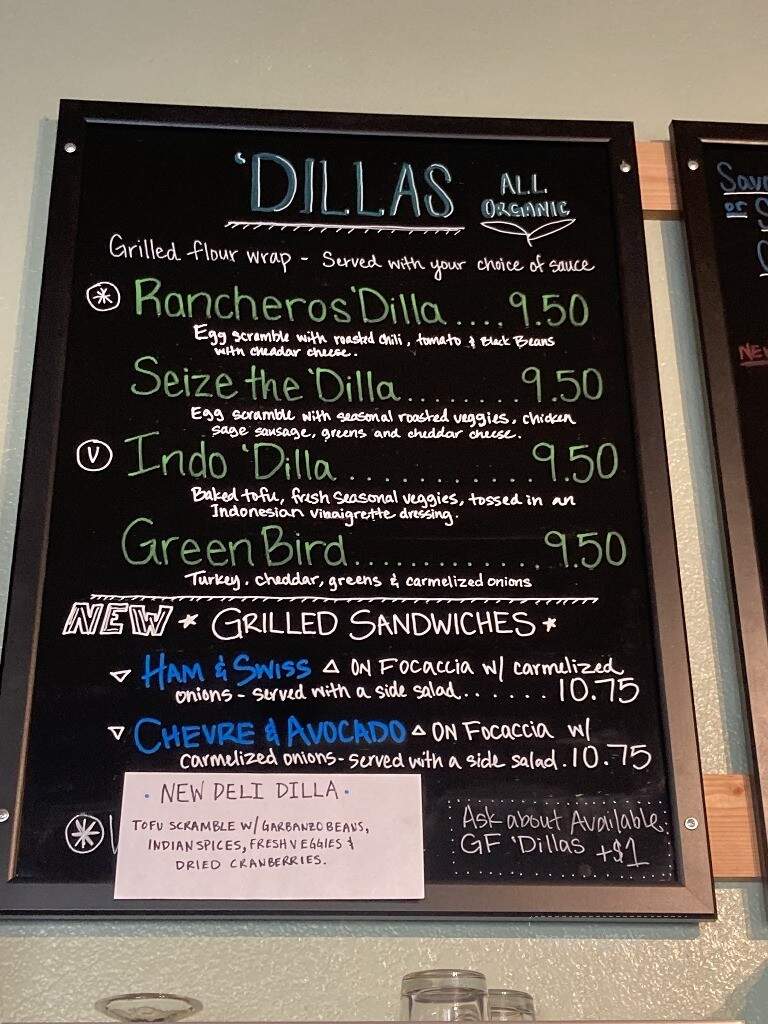 'DILLAS
ALL
ORGANIC
Grilled flour wrap - Served with your choice of sauce
* Rancheros 'Dilla .... 9.50
Egg scramble with roasted chili, tomato & Black Beans
with cheddar cheese.
Seize the 'Dilla........9.50
Egg scramble with seasonal roasted veggies, chicken
sage sausage, greens and cheddar cheese.
V Indo 'Dilla ............9.50
Baked tofu, fresh seasonal veggies, tossed in an
Indonesian vinaigrette dressing.
Green Bird..............9.50
Turkey, cheddar, greens & carmelized onions
NEW * GRILLED SANDWICHES *
▽ HAM & SWISS △ ON FOCACCIA W/ carmelized
onions - served with a side salad....... 10.75
▽ CHEVRE & AVOCADO △ ON FOCACCIA W/
carmelized onions - served with a side salad. 10.75
· NEW DELI DILLA ·
TOFU SCRAMBLE W/ GARBANZO BEANS,
INDIAN SPICES, FRESH VEGGIES &
DRIED CRANBERRIES.
*
Ask about Available
GF 'Dillas +$1
or